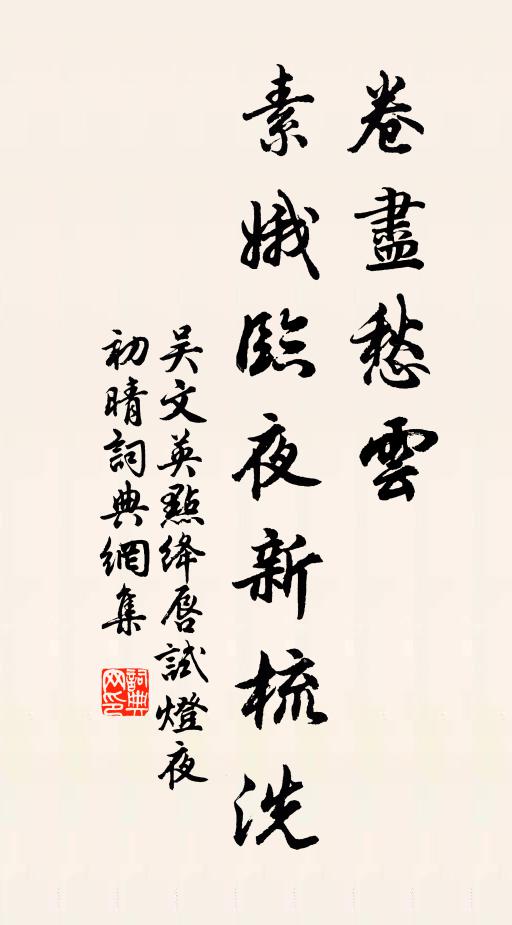 卷盡愁雲
素娥臨夜新梳洗
吴文英點絳唇試燈夜
初晴詞典網集
詞典
网印